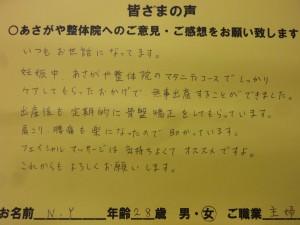 皆さまの声
○あさがや整体院へのご意見・ご感想をお願い致します
いつもお世話になってます。
妊娠中、あさがや整体院のマタニティコースでしっかり
ケアしてもらったおかげで無事出産することができました。
出産後も定期的に骨盤矯正をしてもらっています。
肩こり、腰痛も楽になったので助かっています。
フェイシャルマッサージは気持ちよくてオススメですよ。
これからもよろしくお願いします。
お名前 N.Y 年齢28歳 男・女 ご職業 主婦